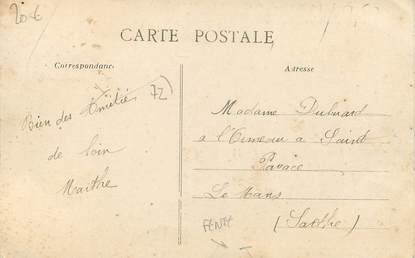 20€
CARTE POSTALE
Correspondance
Adresse
Bien des Amitiés
72)
de loin
Marthe
Madame
a l'Ormeau a Saint
Pavace
Le Mans
(Sarthe)